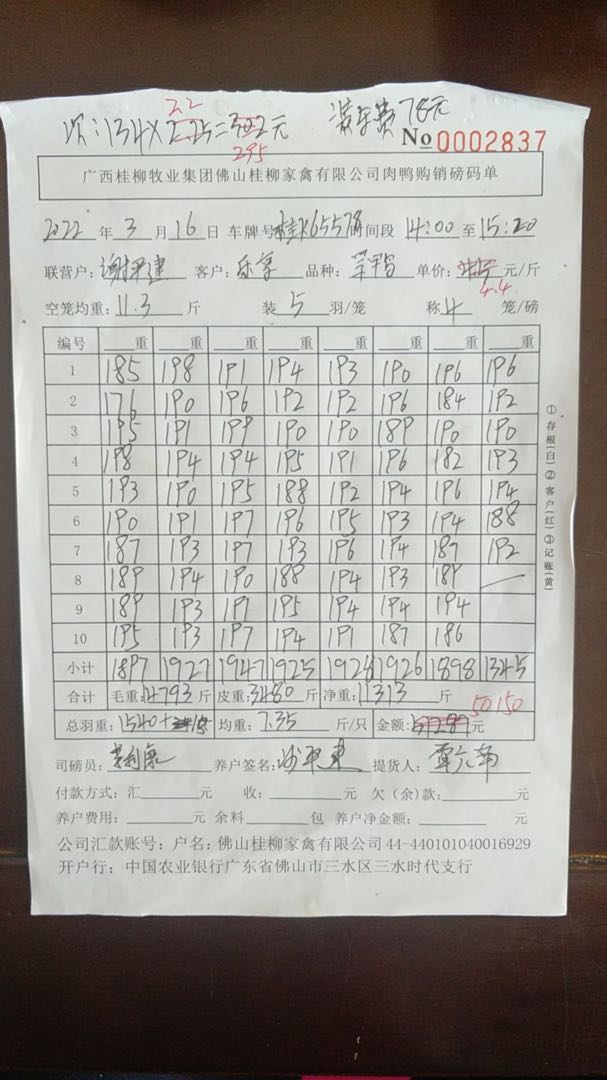 22
次:134×2.25=302元 装车费78元
295
No 0002837
广西桂柳牧业集团佛山桂柳家禽有限公司肉鸭购销磅码单
2022 年 3 月 16 日 车牌号 桂K65578 时间段 14:00 至 15:20
联营户: 客户: 乐享 品种: 单价: 元/斤
4.4
空笼均重: 11.3 斤 装 5 羽/笼 称 4 笼/磅
编号 重 重 重 重 重 重 重 重
1 185 198 191 194 193 190 196 196
2 176 190 196 192 192 196 184 192
3 195 191 199 190 190 189 190 190
4 198 194 194 195 191 196 182 193
5 193 190 195 188 192 194 196 194
6 190 191 197 196 195 193 194 188
7 187 193 197 193 196 194 187 192
8 189 194 190 188 194 193 189
9 189 193 191 195 194 194 194
10 195 193 197 194 191 187 186
小计 1897 1927 1947 1925 1928 1926 1898 1345
合计 毛重: 14793 斤 皮重: 3480 斤 净重: 11313 斤
50150
总羽重: 1540+ 均重: 7.35 斤/只 金额: 元
司磅员: 养户签名: 提货人:
付款方式: 汇 元 收: 元 欠(余)款: 元
养户费用: 元 余料 包 养户净金额: 元
公司汇款账号: 户名: 佛山桂柳家禽有限公司 44-440101040016929
开户行: 中国农业银行广东省佛山市三水区三水时代支行
①存根(白)②客户(红)③记账(黄)